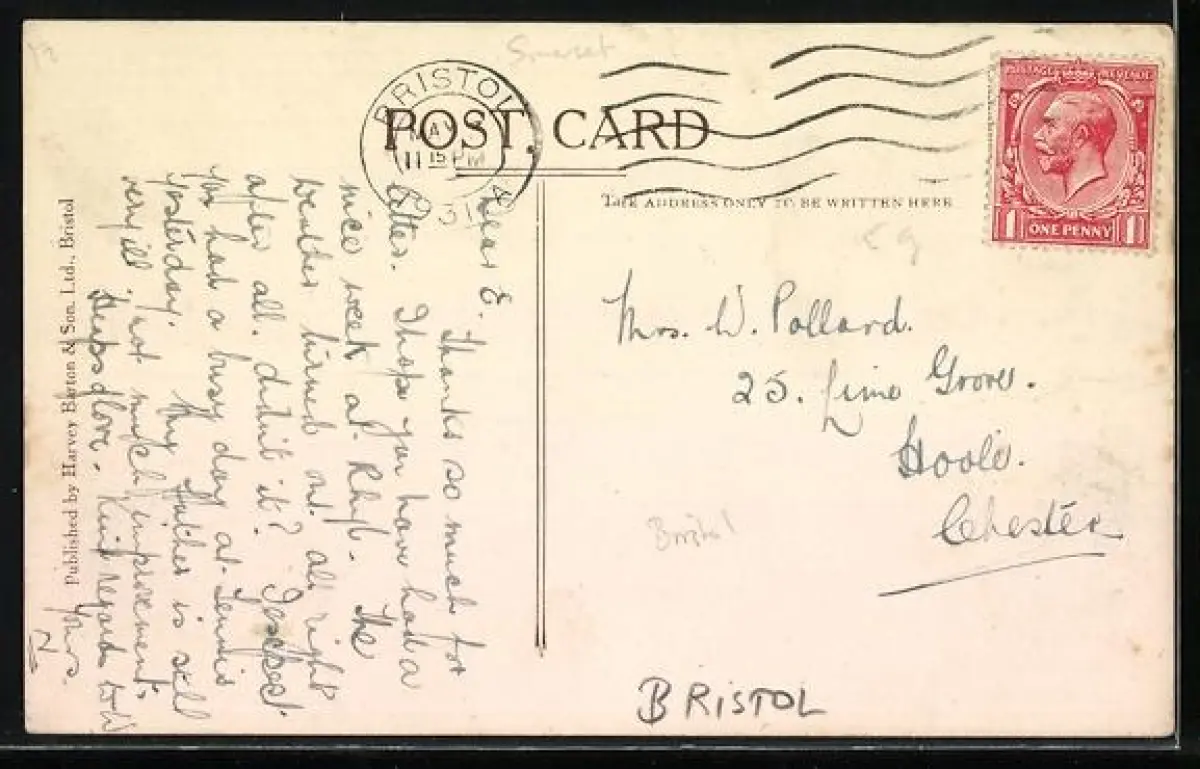 Somerset
BRISTOL
MAY
11 15 PM
POST CARD
THE ADDRESS ONLY TO BE WRITTEN HERE
POSTAGE REVENUE
1 ONE PENNY 1
Published by Harvey Barton & Son. Ltd., Bristol
Dear E.
Thanks so much for
letter. I hope you have had a
nice week at Rhyl. The
weather turned out all right
after all. didn't it? I expect
you had a busy day at Tennis
yesterday. My father is still
very ill, not much improvement.
Heaps of love. Kind regards to W
Yrs.
N
Mrs. W. Pollard.
25. Lime Grove.
Hoole.
Chester
Bristol
BRISTOL